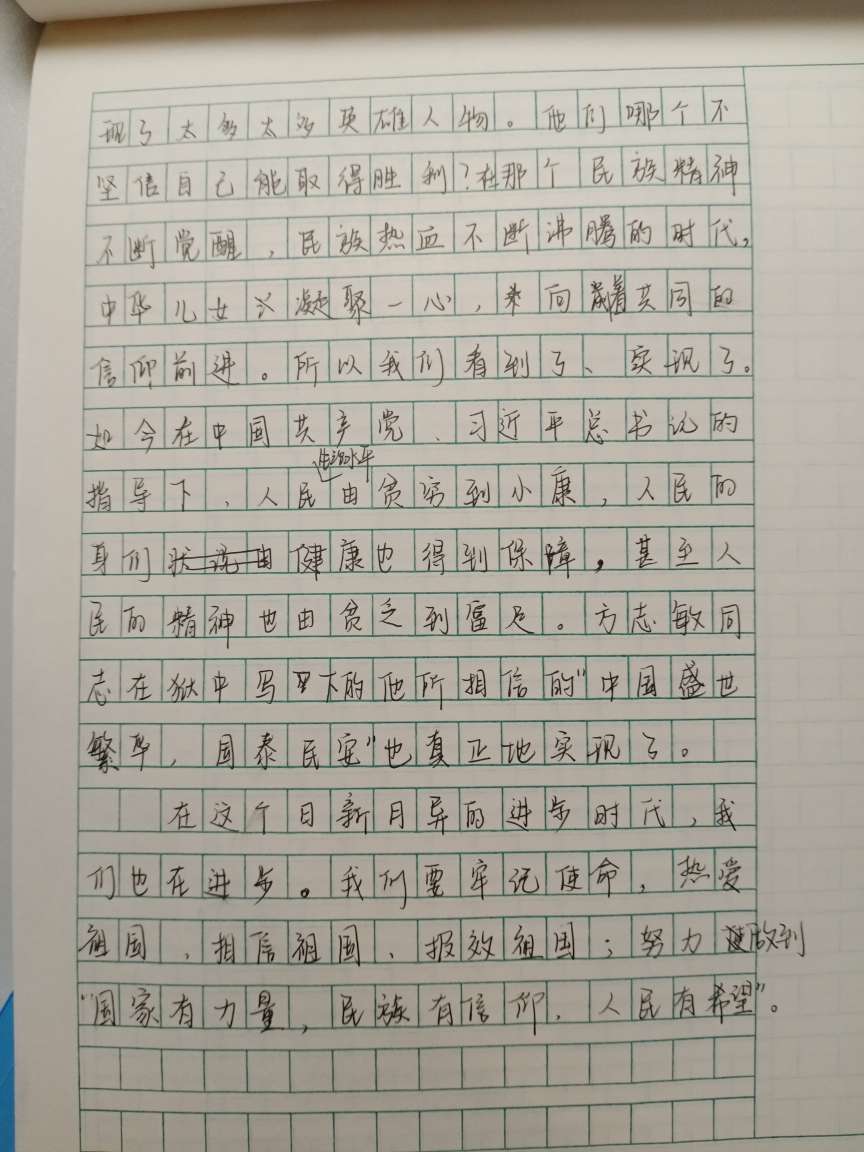 现了太多太多英雄人物。他们哪个不
坚信自己能取得胜利?在那个民族精神
不断觉醒,民族热血不断沸腾的时代,
中华儿女凝聚一心,来向着共同的
信仰前进。所以我们看到了、实现了。
如今在中国共产党、习近平总书记的
指导下,人民生活水平由贫穷到小康,人民的
身们健康也得到保障,甚至人
民的精神也由贫乏到富足。方志敏同
志在狱中写下的他所相信的"中国盛世
繁华,国泰民安"也真正地实现了。
在这个日新月异的进步时代,我
们也在进步。我们要牢记使命,热爱
祖国、相信祖国、报效祖国;努力做到
"国家有力量,民族有信仰,人民有希望"。